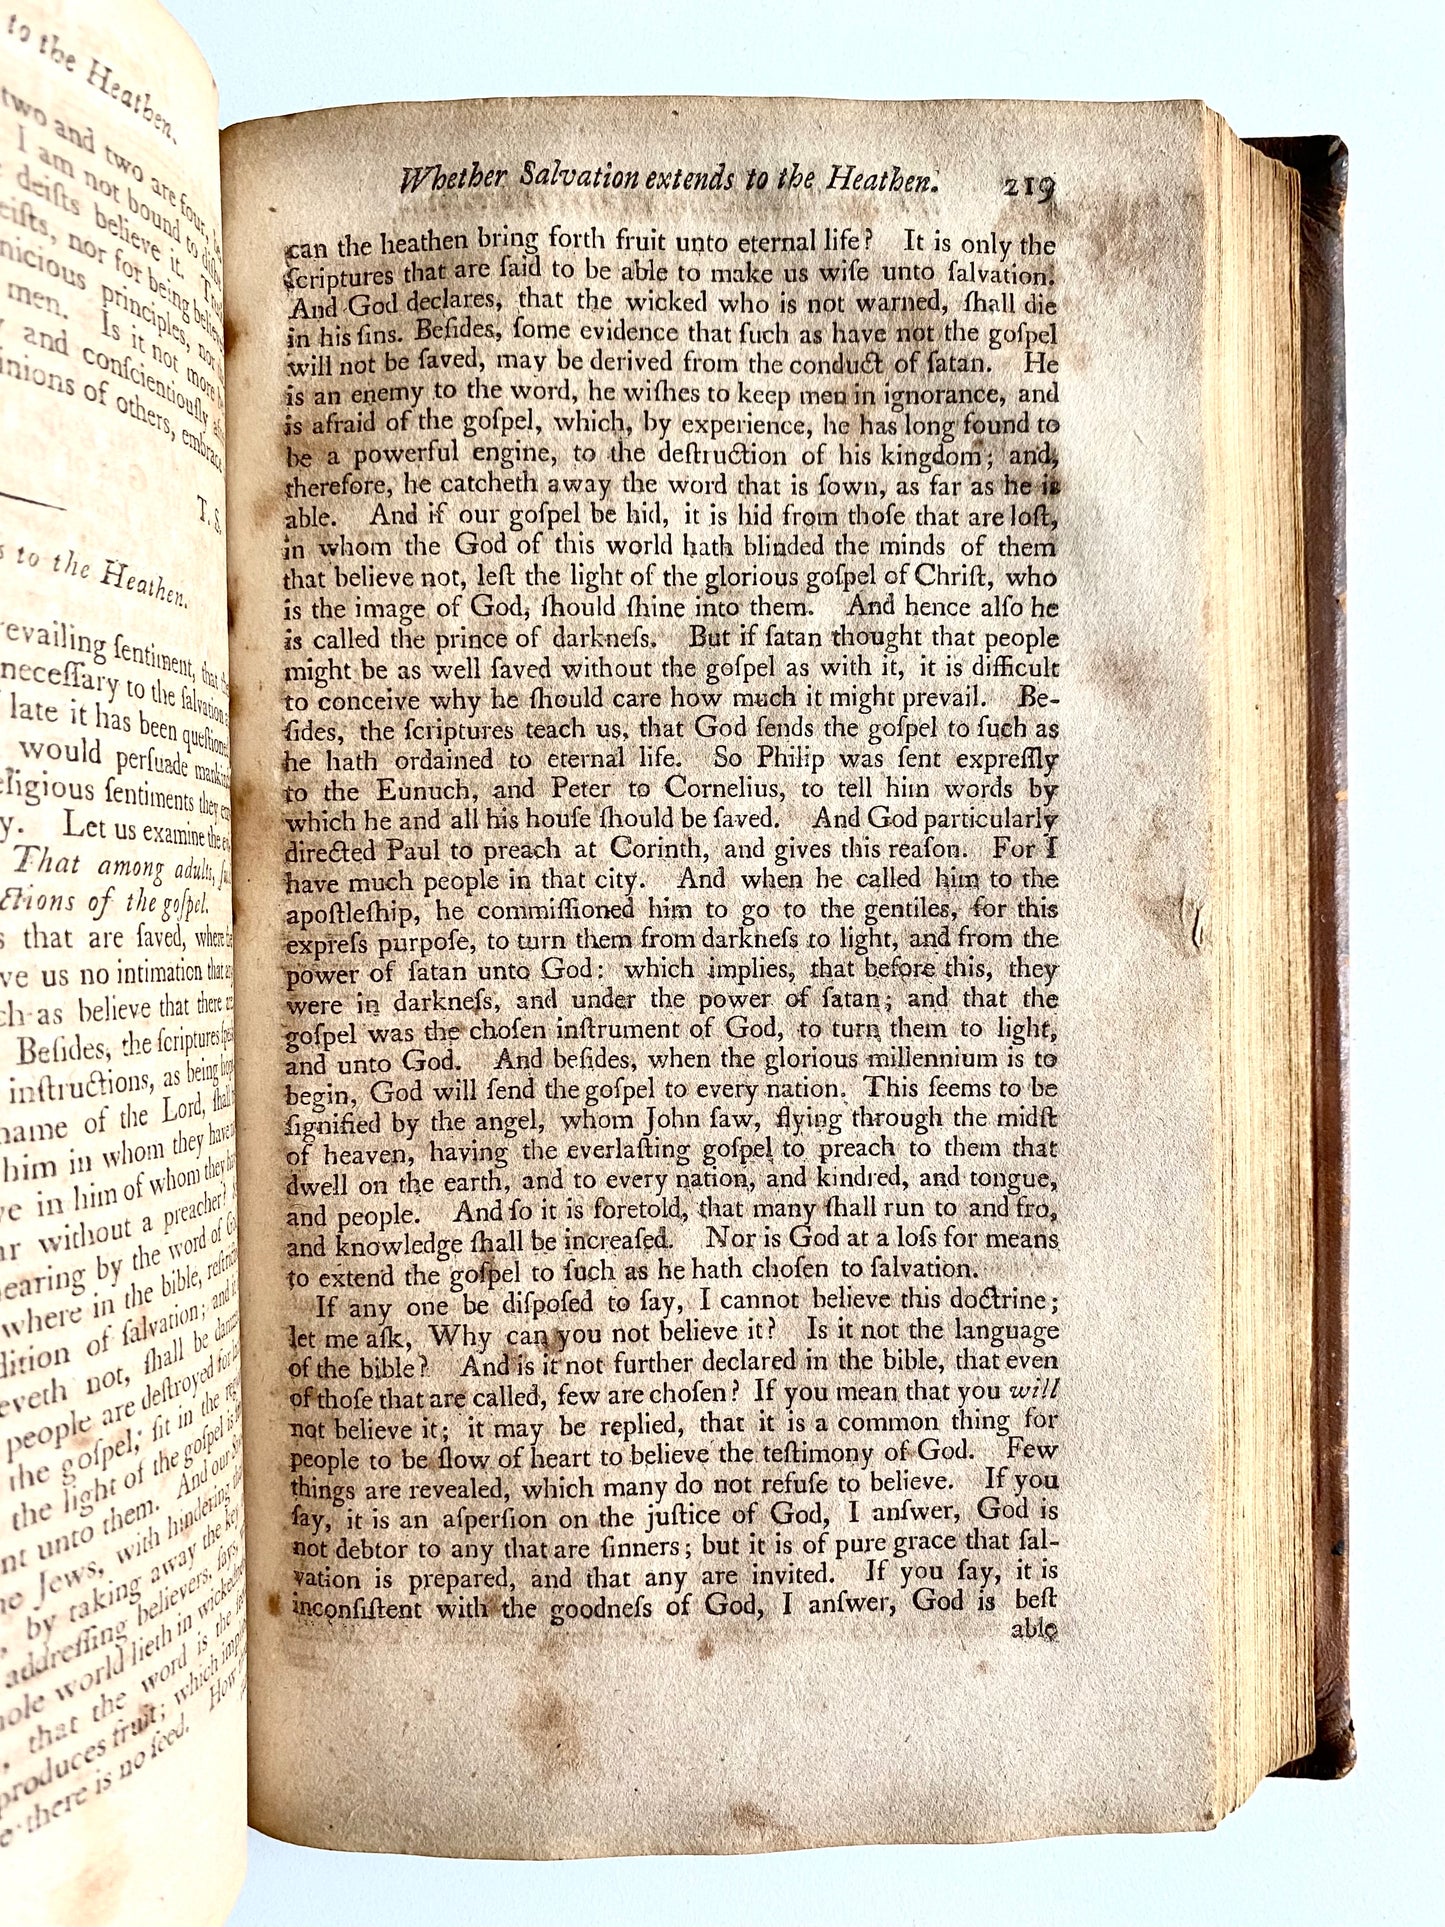 to the Heathen.
two and two are four, be
I am not bound to disbe
deiſts believe it. T
eiſts, nor for being believed
nicious principles, nor
men. Is it not more
and conſcientiouſly
inions of others, embrace
T. S.
s to the Heathen.
revailing ſentiment, that the
neceſſary to the ſalvation
late it has been queſtioned
would perſuade mankind
eligious ſentiments they
y. Let us examine the
That among adults,
ctions of the goſpel.
s that are ſaved, where the
ve us no intimation that any
ch as believe that there are
Beſides, the ſcriptures
inſtructions, as being
name of the Lord, ſhall
him in whom they have
ve in him of whom they have
ar without a preacher?
earing by the word of
where in the bible,
dition of ſalvation; and
eveth not, ſhall be
people are deſtroyed for
the goſpel; ſit in the
the light of the goſpel is
nt unto them. And our
he Jews, with hindering
, by taking away the key
addreſſing believers, ſays,
hole world lieth in wickedneſs
, that the word is the
produces fruit; which
e there is no ſeed. How
Whether Salvation extends to the Heathen. 219
can the heathen bring forth fruit unto eternal life? It is only the
ſcriptures that are ſaid to be able to make us wiſe unto ſalvation.
And God declares, that the wicked who is not warned, ſhall die
in his ſins. Beſides, ſome evidence that ſuch as have not the goſpel
will not be ſaved, may be derived from the conduct of ſatan. He
is an enemy to the word, he wiſhes to keep men in ignorance, and
is afraid of the goſpel, which, by experience, he has long found to
be a powerful engine, to the deſtruction of his kingdom; and,
therefore, he catcheth away the word that is ſown, as far as he is
able. And if our goſpel be hid, it is hid from thoſe that are loſt,
in whom the God of this world hath blinded the minds of them
that believe not, leſt the light of the glorious goſpel of Chriſt, who
is the image of God, ſhould ſhine into them. And hence alſo he
is called the prince of darkneſs. But if ſatan thought that people
might be as well ſaved without the goſpel as with it, it is difficult
to conceive why he ſhould care how much it might prevail. Be-
ſides, the ſcriptures teach us, that God ſends the goſpel to ſuch as
he hath ordained to eternal life. So Philip was ſent expreſſly
to the Eunuch, and Peter to Cornelius, to tell him words by
which he and all his houſe ſhould be ſaved. And God particularly
directed Paul to preach at Corinth, and gives this reaſon. For I
have much people in that city. And when he called him to the
apoſtleſhip, he commiſſioned him to go to the gentiles, for this
expreſs purpoſe, to turn them from darkneſs to light, and from the
power of ſatan unto God: which implies, that before this, they
were in darkneſs, and under the power of ſatan; and that the
goſpel was the choſen inſtrument of God, to turn them to light,
and unto God. And beſides, when the glorious millennium is to
begin, God will ſend the goſpel to every nation. This ſeems to be
ſignified by the angel, whom John ſaw, flying through the midſt
of heaven, having the everlaſting goſpel to preach to them that
dwell on the earth, and to every nation, and kindred, and tongue,
and people. And ſo it is foretold, that many ſhall run to and fro,
and knowledge ſhall be increaſed. Nor is God at a loſs for means
to extend the goſpel to ſuch as he hath choſen to ſalvation.
If any one be diſpoſed to ſay, I cannot believe this doctrine;
let me aſk, Why can you not believe it? Is it not the language
of the bible? And is it not further declared in the bible, that even
of thoſe that are called, few are choſen? If you mean that you will
not believe it; it may be replied, that it is a common thing for
people to be ſlow of heart to believe the teſtimony of God. Few
things are revealed, which many do not refuſe to believe. If you
ſay, it is an aſperſion on the juſtice of God, I anſwer, God is
not debtor to any that are ſinners; but it is of pure grace that ſal-
vation is prepared, and that any are invited. If you ſay, it is
inconſiſtent with the goodneſs of God, I anſwer, God is beſt
able